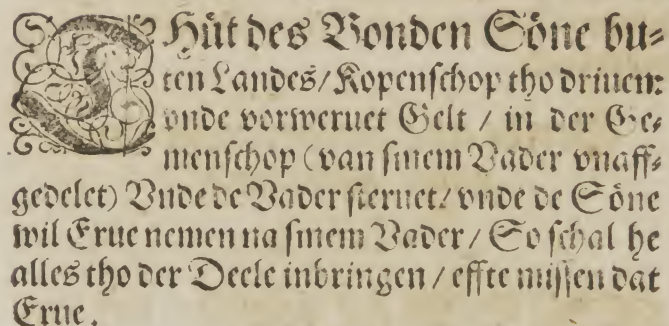 THüt des Bonden Söne bu=
ten Landes/ Kopenſchop tho driuen:
vnde vorweruet Gelt / in der Ge=
menſchop (van ſinem Vader vnaff=
gedelet) Vnde de Vader ſteruet/ vnde de Söne
wil Erue nemen na ſinem Vader / So ſchal he
alles tho der Deele inbringen / effte miſſen dat
Erue.